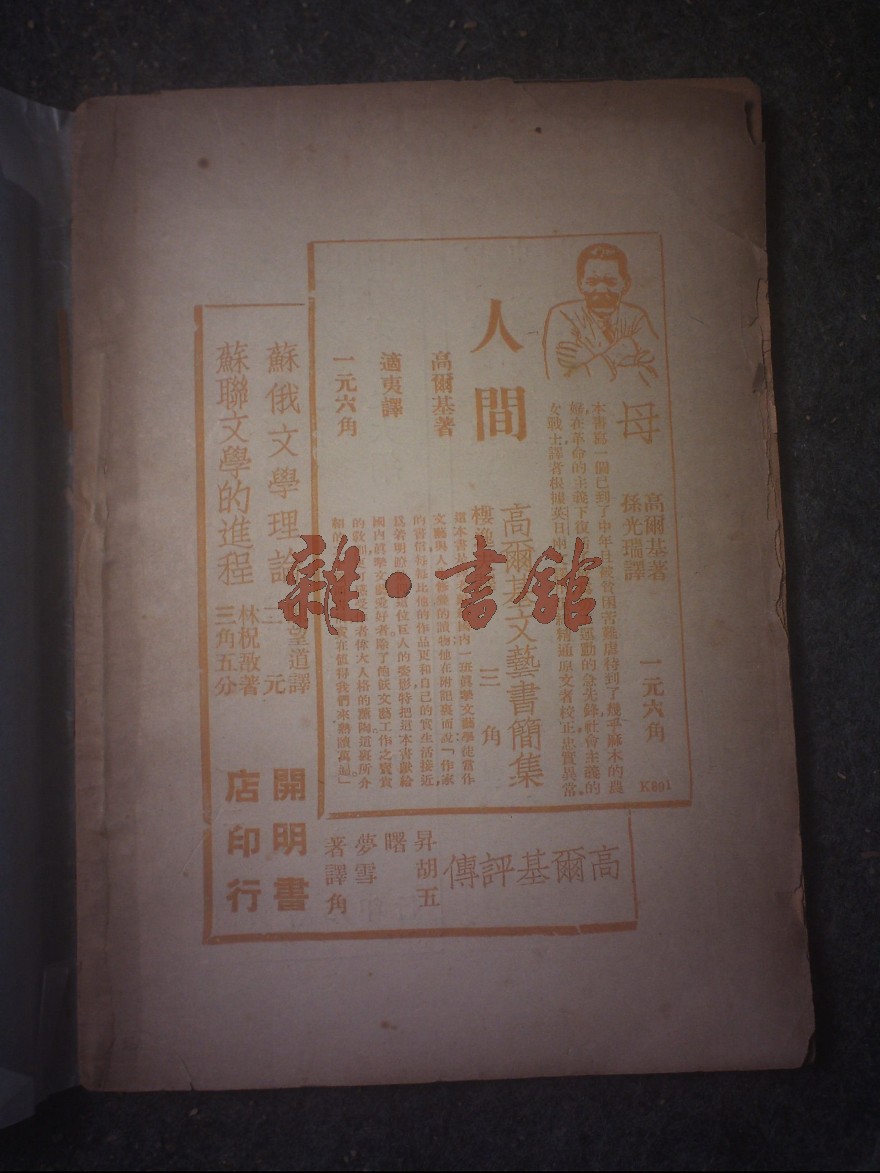 母
高爾基著
孫光瑞譯
一元六角
本書寫一個已到了中年且被貧困苦難虐待到了幾乎麻木的農
婦在革命的主義下復 運動的急先鋒社會主義的
女戰士譯者根據英日兩 精通原文者校正忠實異常。
K891
人間
高爾基著
適夷譯
一元六角
高爾基文藝書簡集
樓逸
三角
內一班真摯文藝學徒當作
文藝與人 的讀物他在附記裏而說「作家
的書信 比他的作品更和自己的實生活接近,
爲着明瞭 這位巨人的姿影特把這本書獻給
國內真摯文藝愛好者除了飽飫文藝工作之寶貴
的教訓 者偉大人格的薰陶這裏所介
紹的 實在值得我們來熟讀萬遍」
高爾基評傳
昇曙夢著
胡雪譯
五角
蘇俄文學理論
望道譯
二元
蘇聯文學的進程
林祝敔著
三角五分
開明書
店印行
雜·書館